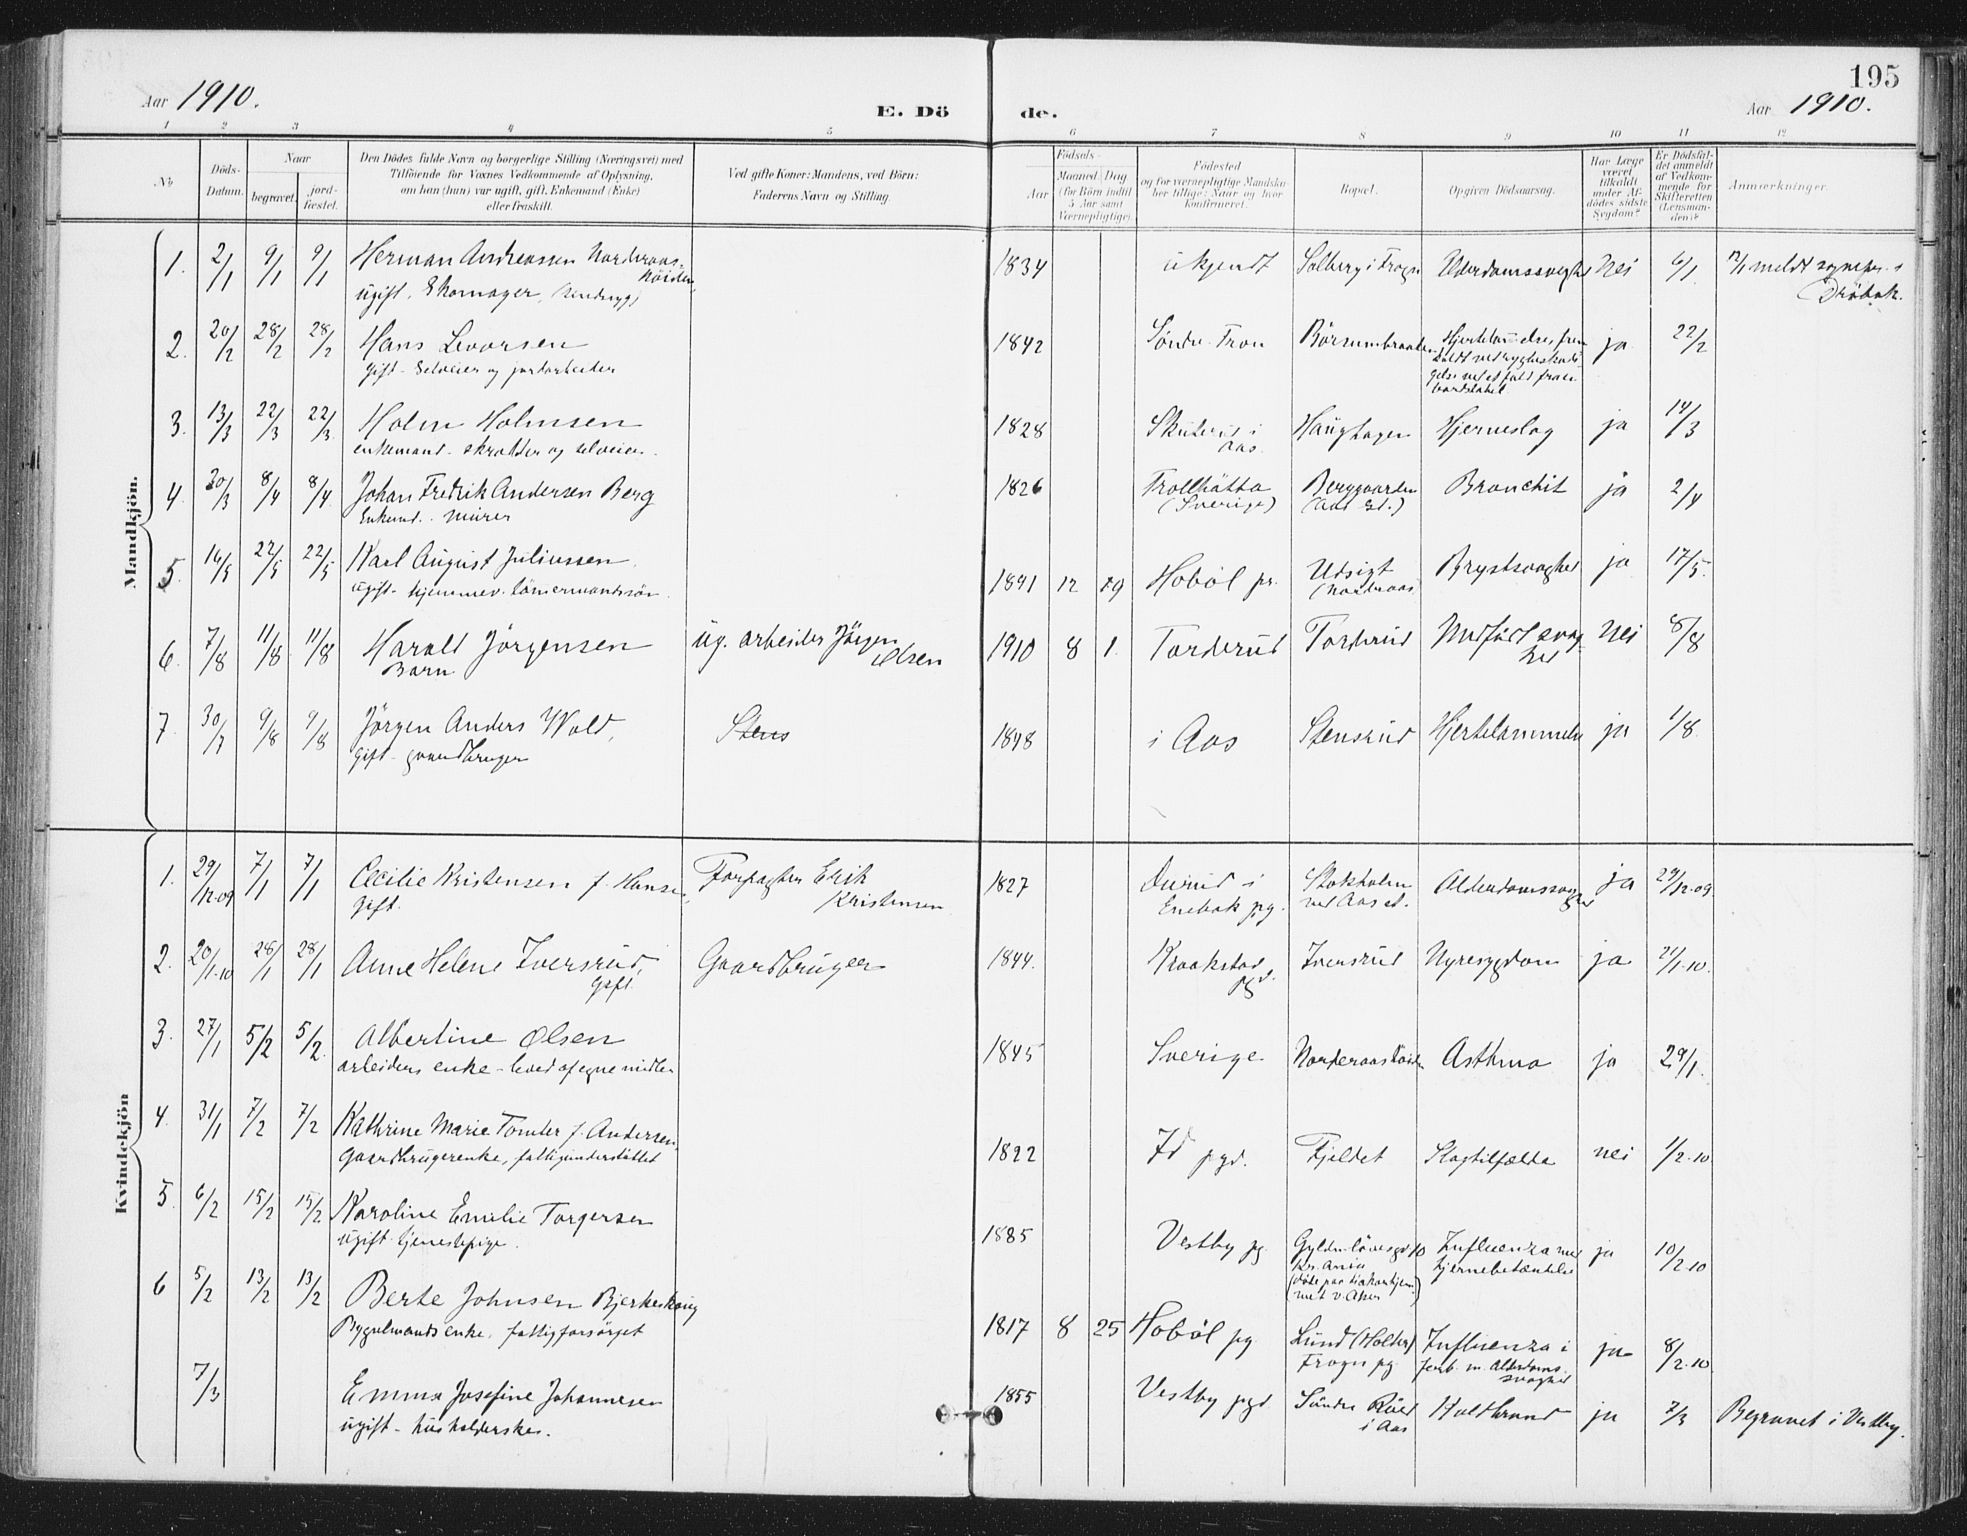 195
Aar 1910.
E. Dö
de.
Aar 1910.
1 2 3 4 5 6 7 8 9 10 11 12
No
Döds-Datum.
Naar
begravet.
jord-fæstet.
Den Dödes fulde Navn og borgerlige Stilling (Næringsvei) med
Tilföiende for Voxnes Vedkommende af Oplysning,
om han (hun) var ugift, gift, Enkemand (Enke)
eller fraskilt.
Ved gifte Koner: Mandens, ved Börn:
Faderens Navn og Stilling.
Födsels-
Aar
Maaned Dag
(for Börn indtil
5 Aar samt
Værnepligtige).
Födested
og for værnepligtige Mandska-
ber tillige: Naar og hvor
Konfirmeret.
Bopæl.
Opgiven Dödsaarsag.
Har Læge
været
tilkaldt
under Af-
dödes sidste
Sygdom?
Er Dödsfal-
det anmeldt
af Vedkom-
mende for
Skifteretten
(Lensman-
den)?
Anmærkninger.
Mandkjön.
1. 2/1 9/1 9/1 Herman Andreassen Norderaas- 1834 ukjendt Solberg i Frogn Alderdomssvaghed Nei 6/1 meldt sognepr. i
ugift. Skomager. Dröbak.
2. 20/2 28/2 28/2 Hans Levorsen 1842 Söndre Tron ja 22/2
gift - Selveier og jordarbeider
3. 13/3 22/3 22/3 Holm Holmsen 1828 Skuterud i Haughagen Hjerneslag ja 14/3
enkemand. skrædder og selveier. Aas.
4. 30/3 8/4 8/4 Johan Fredrik Andersen Berg 1826 Trollhätta Berggaarden Bronchit ja 2/4
Enkemd. Murer (Sverige) (Aas St.)
5. 16/5 22/5 22/5 Karl August Juliussen 1891 12 19 Hoböl pr. Udsigt Brystsvaghed ja 17/5.
ugift - hjemmev. tömermandssön. (Norderaas)
6. 7/8 11/8 11/8 Harald Jörgensen ug. arbeider Jörgen Olsen 1910 8 1. Torderud Torderud Medfödt svaghed Nei 8/8
Barn.
7. 30/7 9/8 9/8 Jörgen Anders Wold, Stens 1848 i Aas Stensrud Hjertelammelse ja 1/8.
Gift - gaardbruger
Kvindekjön
1. 29/12.09 7/1 7/1 Cecilie Kristensen f. Hansen, Forpagter Erik Kristensen 1827 Durud i Stokholm Alderdomssvaghed ja 29/12.09
gift. Enebak pg. ved Aas st.
2. 20/1.10 28/1 28/1 Anne Helene Iversrud, Gaardbruger 1844. Kraakstad Iversrud Nyresygdom ja 21/1.10.
Gift. pgd.
3. 27/1 5/2 5/2 Albertine Olsen 1845 Sverige Asthma ja 29/1.
arbeiders enke - leved af egne midler
4. 31/1 7/2 7/2 Kathrine Marie Tomter f. Andersen, 1822 Id pgd. Fjeldet Slagtilfælde nei 1/2.10.
Gaardbrugerenke, fattigunderstöttet
5. 6/2 15/2 15/2 Karoline Emilie Torgersen 1885 Vestby pg. Gyldenlövesgd 10 Influenza med ja 10/2.10
ugift - tjenestepige. Kr.ania hjernebetændelse
6 5/2 13/2 13/2 Berte Johnsen Bjerkeskaug 1817 8 25 Hoböl pg. Lund (Holter) Influenza i ja 8/2.10
Bygselmands enke. fattigforsörget Frogn pg. forb. m. Alderdoms-
svaghed
7/3 Emma Josefine Johannesen 1855 Vestby pgd Söndre Röed Koldbrand ja 7/3 Begravet i Vestby.
ugift - husholderske. i Aas